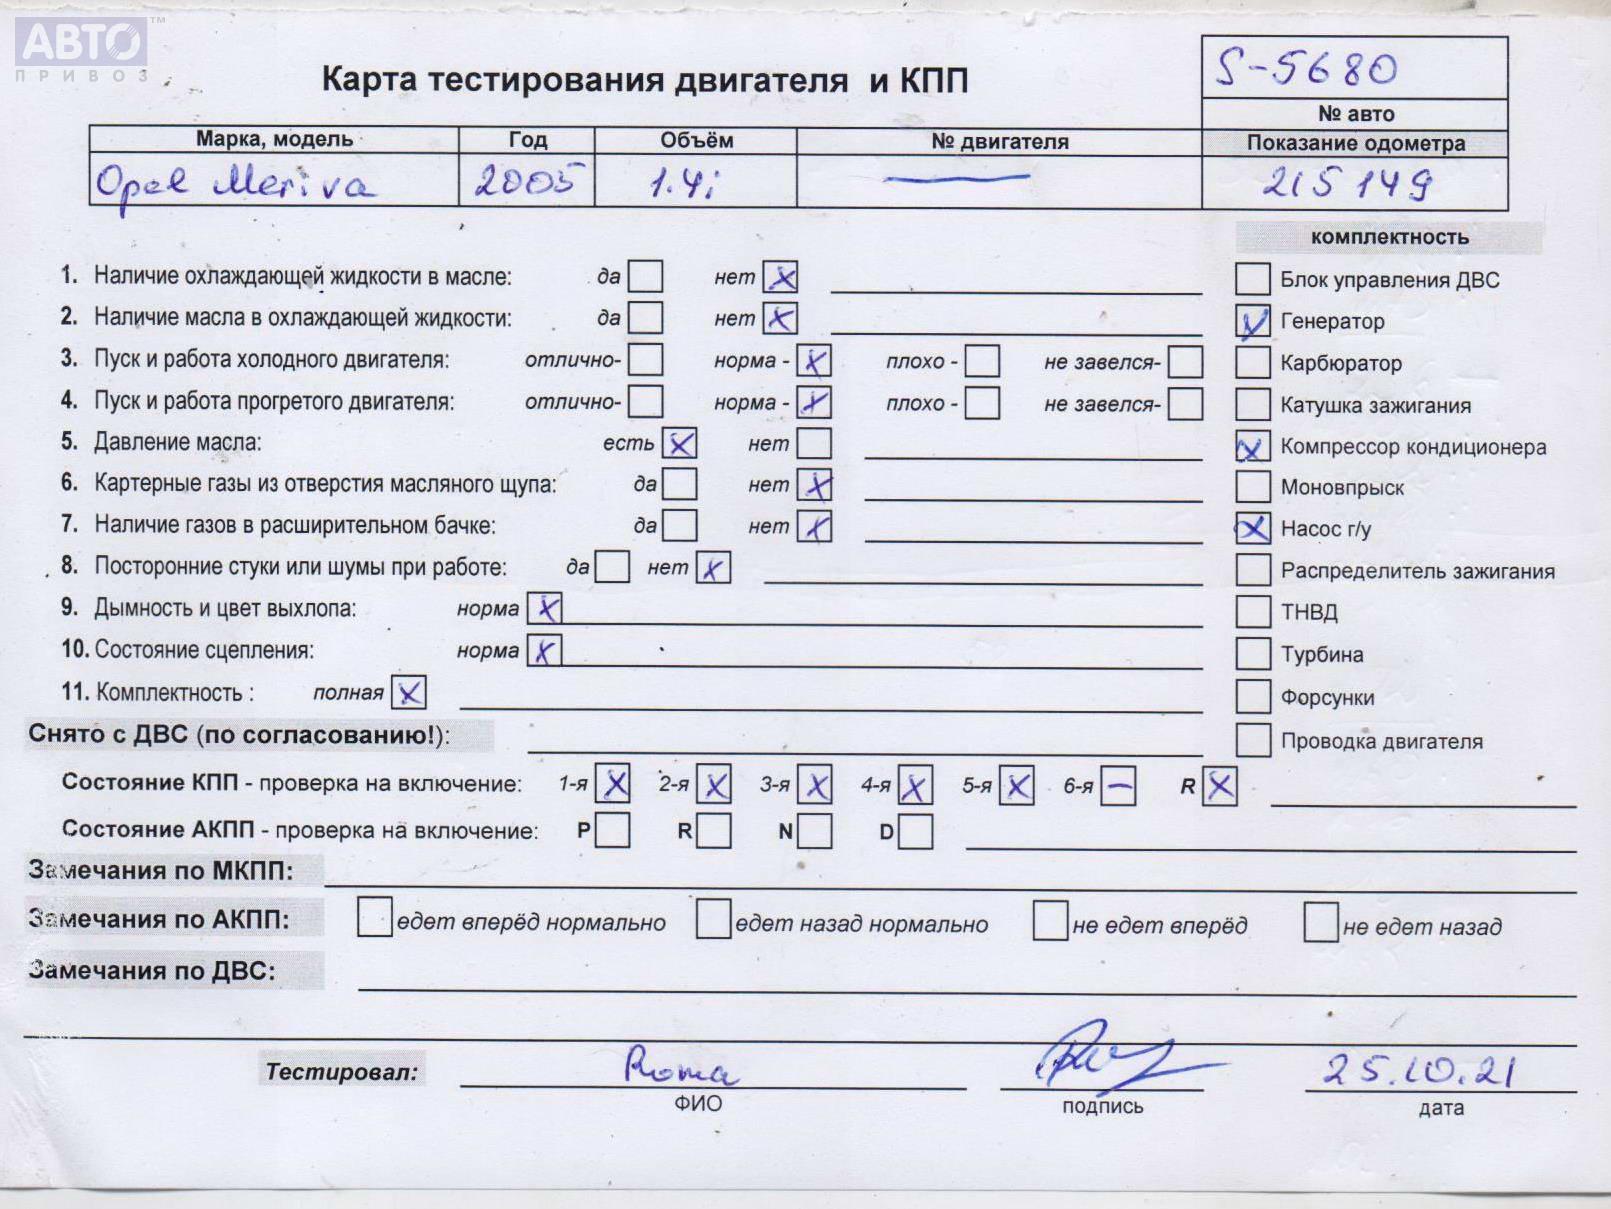 АВТО ™
ПРИВОЗ
Карта тестирования двигателя и КПП
S-5680
№ авто
Марка, модель Год Объём № двигателя Показание одометра
Opel Meriva 2005 1.4i — 215 149
комплектность
1. Наличие охлаждающей жидкости в масле: да нет x
Блок управления ДВС
2. Наличие масла в охлаждающей жидкости: да нет x
Генератор
3. Пуск и работа холодного двигателя: отлично- норма - x плохо - не завелся-
Карбюратор
4. Пуск и работа прогретого двигателя: отлично- норма - x плохо - не завелся-
Катушка зажигания
5. Давление масла: есть x нет
Компрессор кондиционера
6. Картерные газы из отверстия масляного щупа: да нет x
Моновпрыск
7. Наличие газов в расширительном бачке: да нет x
Насос г/у
8. Посторонние стуки или шумы при работе: да нет x
Распределитель зажигания
9. Дымность и цвет выхлопа: норма x
ТНВД
10. Состояние сцепления: норма x
Турбина
11. Комплектность : полная x
Форсунки
Снято с ДВС (по согласованию!):
Проводка двигателя
Состояние КПП - проверка на включение: 1-я x 2-я x 3-я x 4-я x 5-я x 6-я — R x
Состояние АКПП - проверка на включение: P R N D
Замечания по МКПП:
Замечания по АКПП: едет вперёд нормально едет назад нормально не едет вперёд не едет назад
Замечания по ДВС:
Тестировал: Roma 25.10.21
ФИО подпись дата